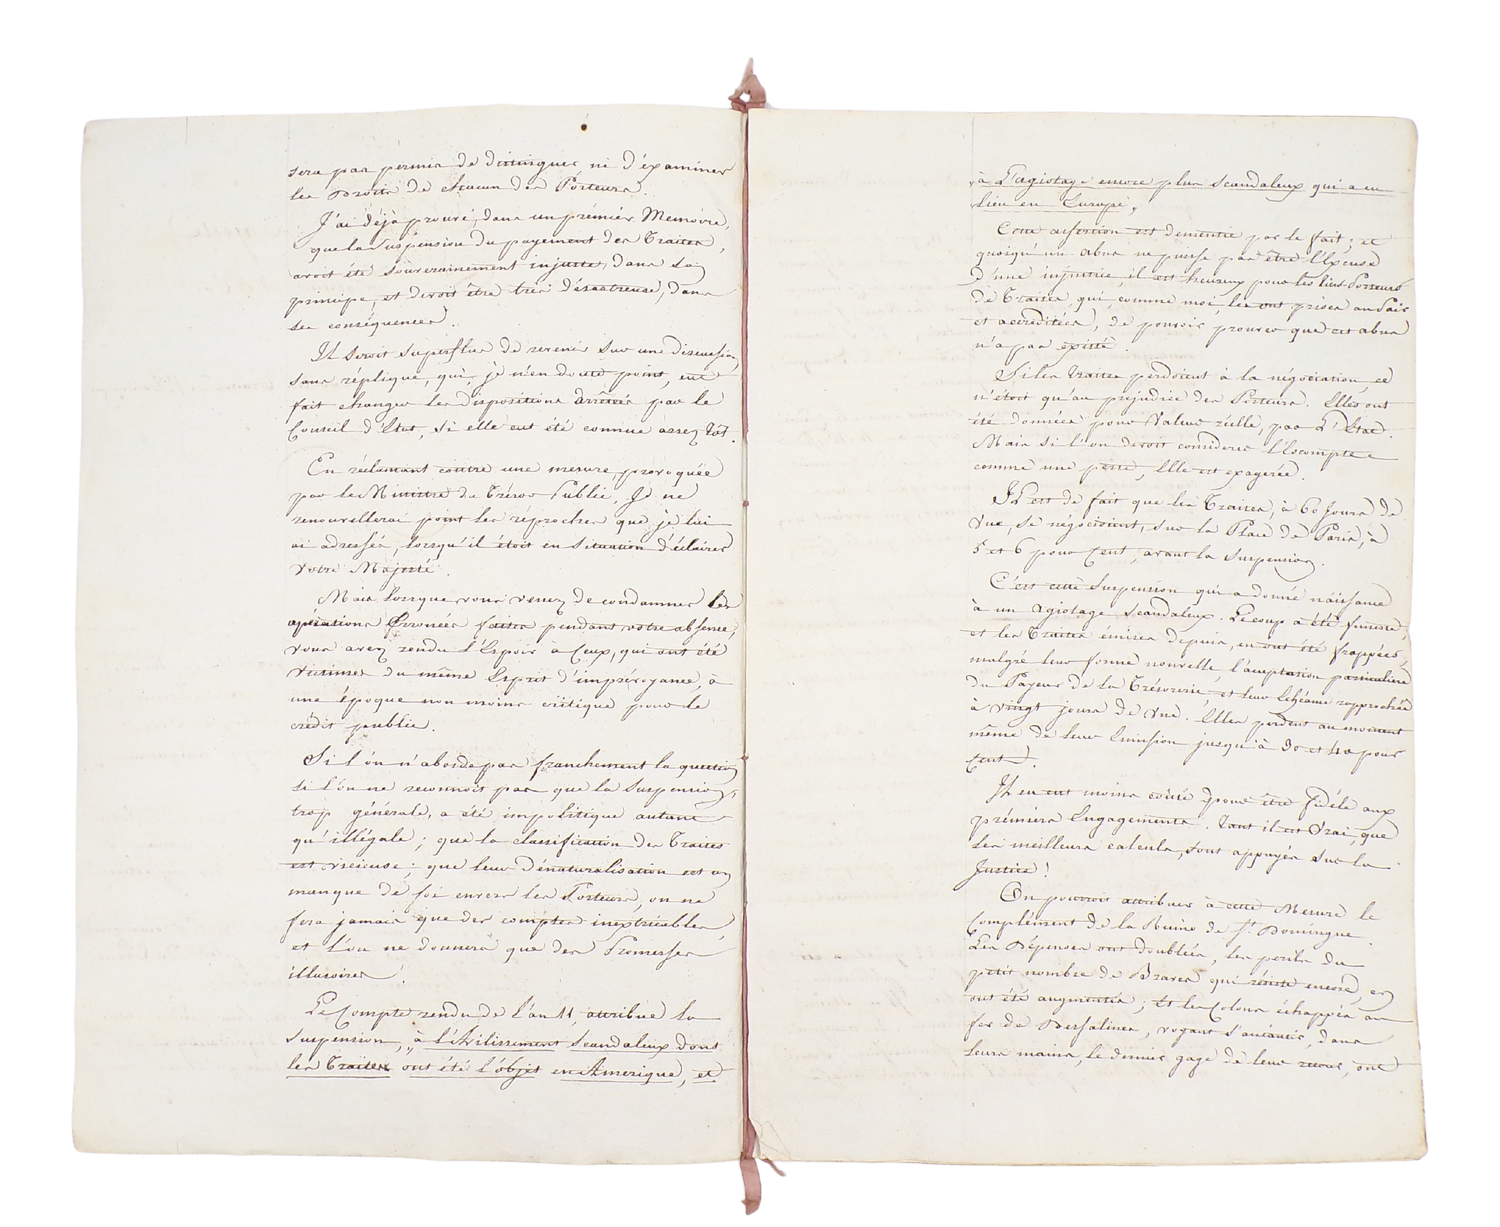 sera pas permis de distinguer ni d'éxaminer
les Droits de chacun des Porteurs.
J'ai déjà prouvé, dans un prémier Memoire,
que la Suspension du payement des Traites,
avoit été souverainement injuste, dans son
principe, et devoit être très désastreuse, dans
ses conséquences.
Il seroit superflus de revenir sur une discussion
sans réplique, qui, je n'en doute point, eut
fait changer les dispositions arrêtées par le
Conseil d'Etat, si elle eut été connue assez tôt.
En réclamant contre une mesure, provoquée
par le Ministre du Trésor Public, Je ne
renouvellerai point les réproches que je lui
ai adressés, lorsqu'il étoit en situation d'éclairer
Votre Majesté.
Mais lorsque vous venez de condamner les
opérations Erronées faites pendant votre absence,
vous avez rendu l'Espoir à Ceux, qui ont été
victimes du même Esprit d'imprévoyance, à
une époque non moins critique pour le
crédit public.
Si l'on n'aborde pas franchement la question
si l'on ne reconnoit pas que la Suspension,
trop générale, a été impolitique autant
qu'illégale; que la classification des Traites
est vicieuse; que leur dénaturalisation est un
manque de foi envers les Porteurs, on ne
fera jamais que des comptes inextricables,
et l'on ne donnera que des Promesses
illusoires.
Le Compte rendu de l'an 11, attribue la
suspension, „à l'Avilissement Scandaleux dont
les Traites ont été l'objet en Amerique, et
„à L'agiotage encore plus scandaleux qui a eu
lieu en Europe,
Cette assertion est dementie par le fait; et
quoiqu'un abus ne puisse pas être l'Excuse
d'une injustice, il est heureux pour les tiers-Porteurs
de Traites, qui, comme moi, les ont prises au Pair
et accréditées, de pouvoir prouver que cet abus
n'a pas existé.
Si les Traites perdoient à la négociation, ce
n'étoit qu'au préjudice des Porteurs. Elles ont
été données pour Valeur réelle, par L'Etat.
Mais si l'on devoit considerer l'Escompte
comme une perte, Elle est exagerée.
Il est de fait que les Traites, à 60 Jours de
Vue, se négocioient, sur la Place de Paris, à
5 et 6 pour Cent, avant la Suspension.
C'est cette Suspension qui a donné naissance
à un Agiotage Scandaleux. Le coup a été funeste;
et les Traites émises depuis, en ont été frappées,
malgré leur forme nouvelle, l'acceptation particulière
du Payeur de la Trésorerie, et leur Echéance rapprochée
à vingt jours de Vue. Elles perdent au moment
même de leur Emission jusqu'à 30 et 40 pour
Cent.
Il en eut moins couté pour être fidéle aux
prémiers Engagements. Tant il est Vrai, que
les meilleurs calculs, sont appuyés sur la
Justice!
On pourroit attribuer à cette Mesure le
Complément de la Ruine de St. Domingue.
Les Dépenses ont doublées, les perils du
petit nombre de Braves qui résiste encore, en
ont été augmentés; Et les Colons échappés au
fer de Dessalines, voyant s'anéantir, dans
leurs mains, le dernier gage de leur retour, ont